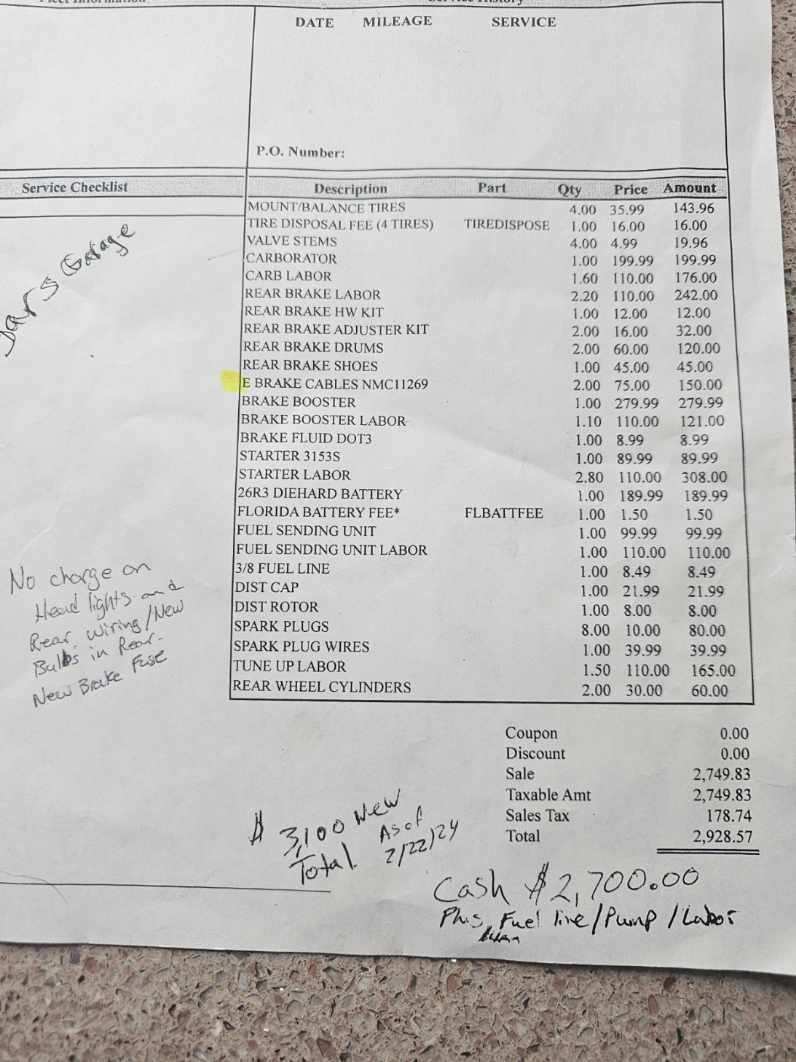 Fleet Information Service History
DATE MILEAGE SERVICE
P.O. Number:
Service Checklist
Description Part Qty Price Amount
MOUNT/BALANCE TIRES 4.00 35.99 143.96
TIRE DISPOSAL FEE (4 TIRES) TIREDISPOSE 1.00 16.00 16.00
VALVE STEMS 4.00 4.99 19.96
CARBORATOR 1.00 199.99 199.99
CARB LABOR 1.60 110.00 176.00
REAR BRAKE LABOR 2.20 110.00 242.00
REAR BRAKE HW KIT 1.00 12.00 12.00
REAR BRAKE ADJUSTER KIT 2.00 16.00 32.00
REAR BRAKE DRUMS 2.00 60.00 120.00
REAR BRAKE SHOES 1.00 45.00 45.00
E BRAKE CABLES NMC11269 2.00 75.00 150.00
BRAKE BOOSTER 1.00 279.99 279.99
BRAKE BOOSTER LABOR 1.10 110.00 121.00
BRAKE FLUID DOT3 1.00 8.99 8.99
STARTER 3153S 1.00 89.99 89.99
STARTER LABOR 2.80 110.00 308.00
26R3 DIEHARD BATTERY 1.00 189.99 189.99
FLORIDA BATTERY FEE* FLBATTFEE 1.00 1.50 1.50
FUEL SENDING UNIT 1.00 99.99 99.99
FUEL SENDING UNIT LABOR 1.00 110.00 110.00
3/8 FUEL LINE 1.00 8.49 8.49
DIST CAP 1.00 21.99 21.99
DIST ROTOR 1.00 8.00 8.00
SPARK PLUGS 8.00 10.00 80.00
SPARK PLUG WIRES 1.00 39.99 39.99
TUNE UP LABOR 1.50 110.00 165.00
REAR WHEEL CYLINDERS 2.00 30.00 60.00
Garage
No charge on
Head lights and
Rear wiring/New
Bulbs in Rear.
New Brake Fuse
Coupon 0.00
Discount 0.00
Sale 2,749.83
Taxable Amt 2,749.83
Sales Tax 178.74
Total 2,928.57
$ 3,100 New
Total As of
2/22/24
Cash $2,700.00
Plus Fuel line/Pump/Labor